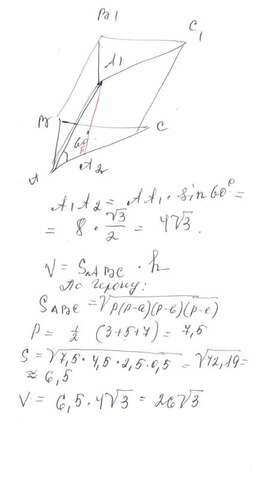 B1
C1
A1
B
60°
C
A
A2
A1A2 = AA1 · sin60° =
= 8 · √3/2 = 4√3.
V = SΔABC · h
По герону:
SABC = √p(p-a)(p-b)(p-c)
P = 1/2 (3+5+7) = 7,5
S = √7,5 · 4,5 · 2,5 · 0,5 = √42,19 =
≈ 6,5
V = 6,5 · 4√3 = 26√3